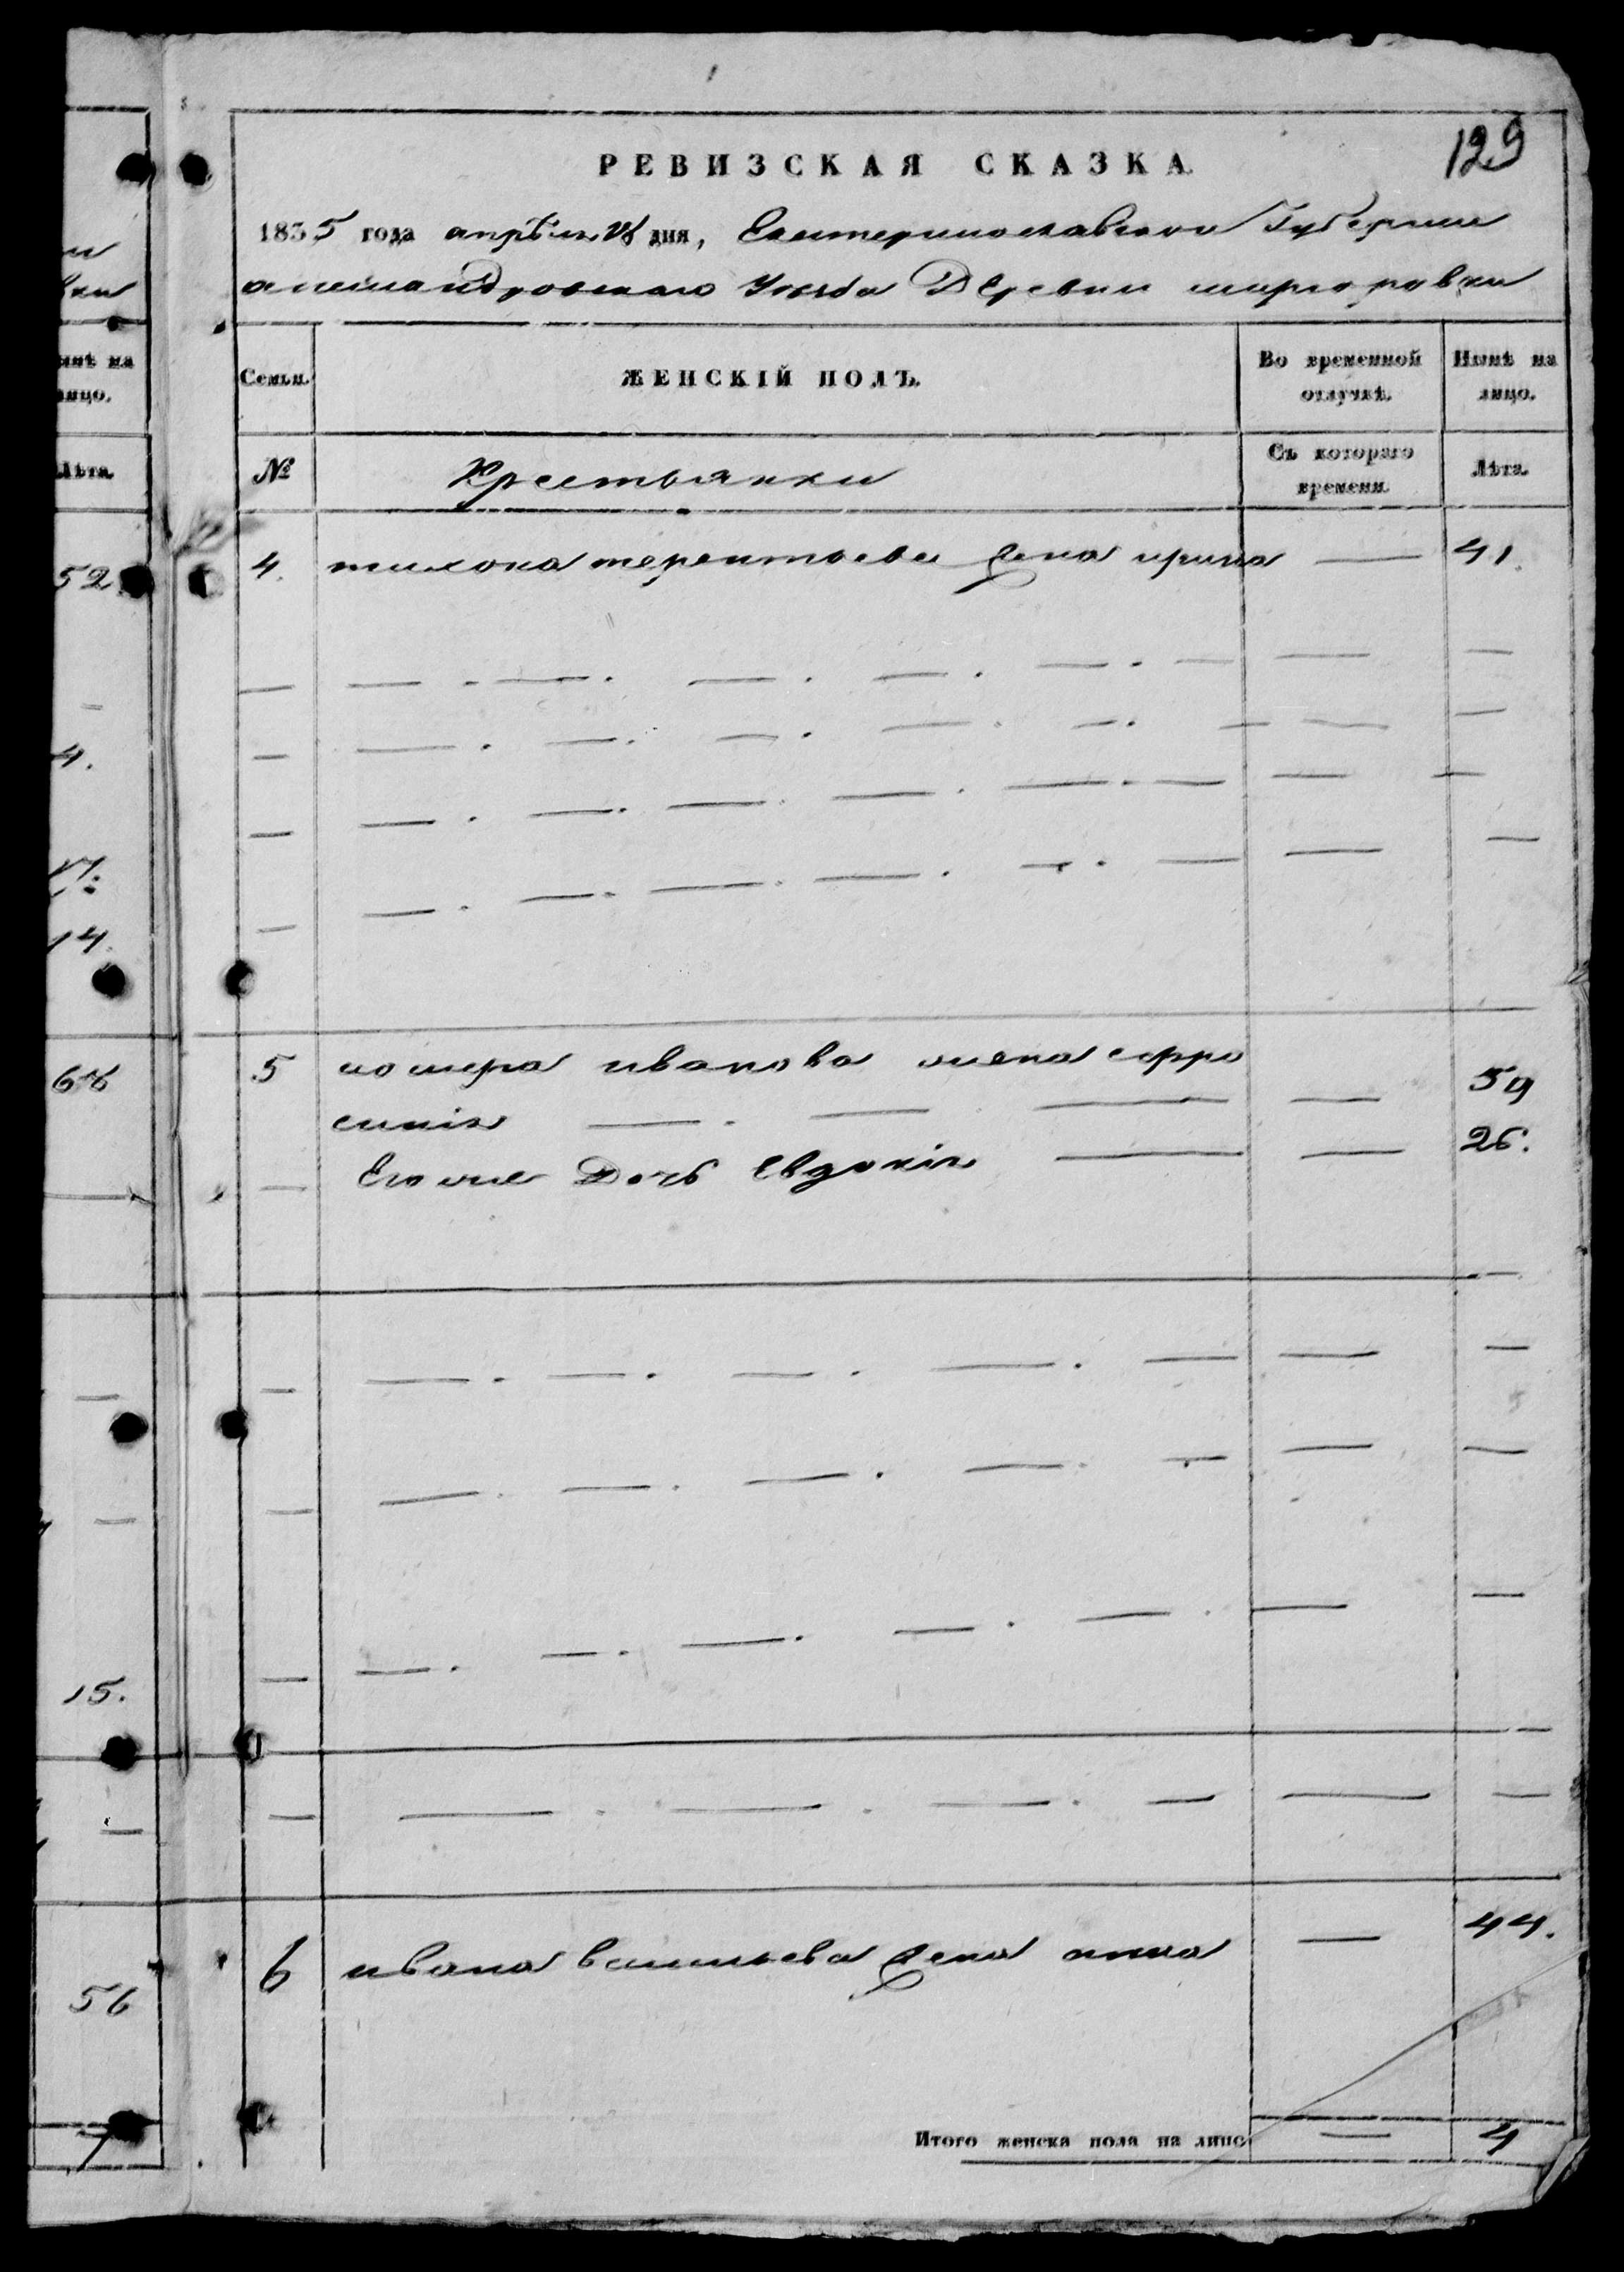 129
РЕВИЗСКАЯ СКАЗКА.
1835 года апрѣля 28 дня, Екатеринославской Губернии
александровскаго Уезда Деревни миргоровки
Семьи. ЖЕНСКІЙ ПОЛЪ. Во временной отлучкѣ. Нынѣ на лицо.
№ Крестьянки Съ котораго времени. Лѣта.
4. тихона терентьева жена ирина — 41.
5 ивана жена ефро
синия — 59
Его же Дочь Евдокия — 26.
6 ивана васильева жена анна — 44.
Итого женска пола на лицо — 4
ынѣ на
лицо.
Лѣта.
52
4.
14.
68
15.
56
7